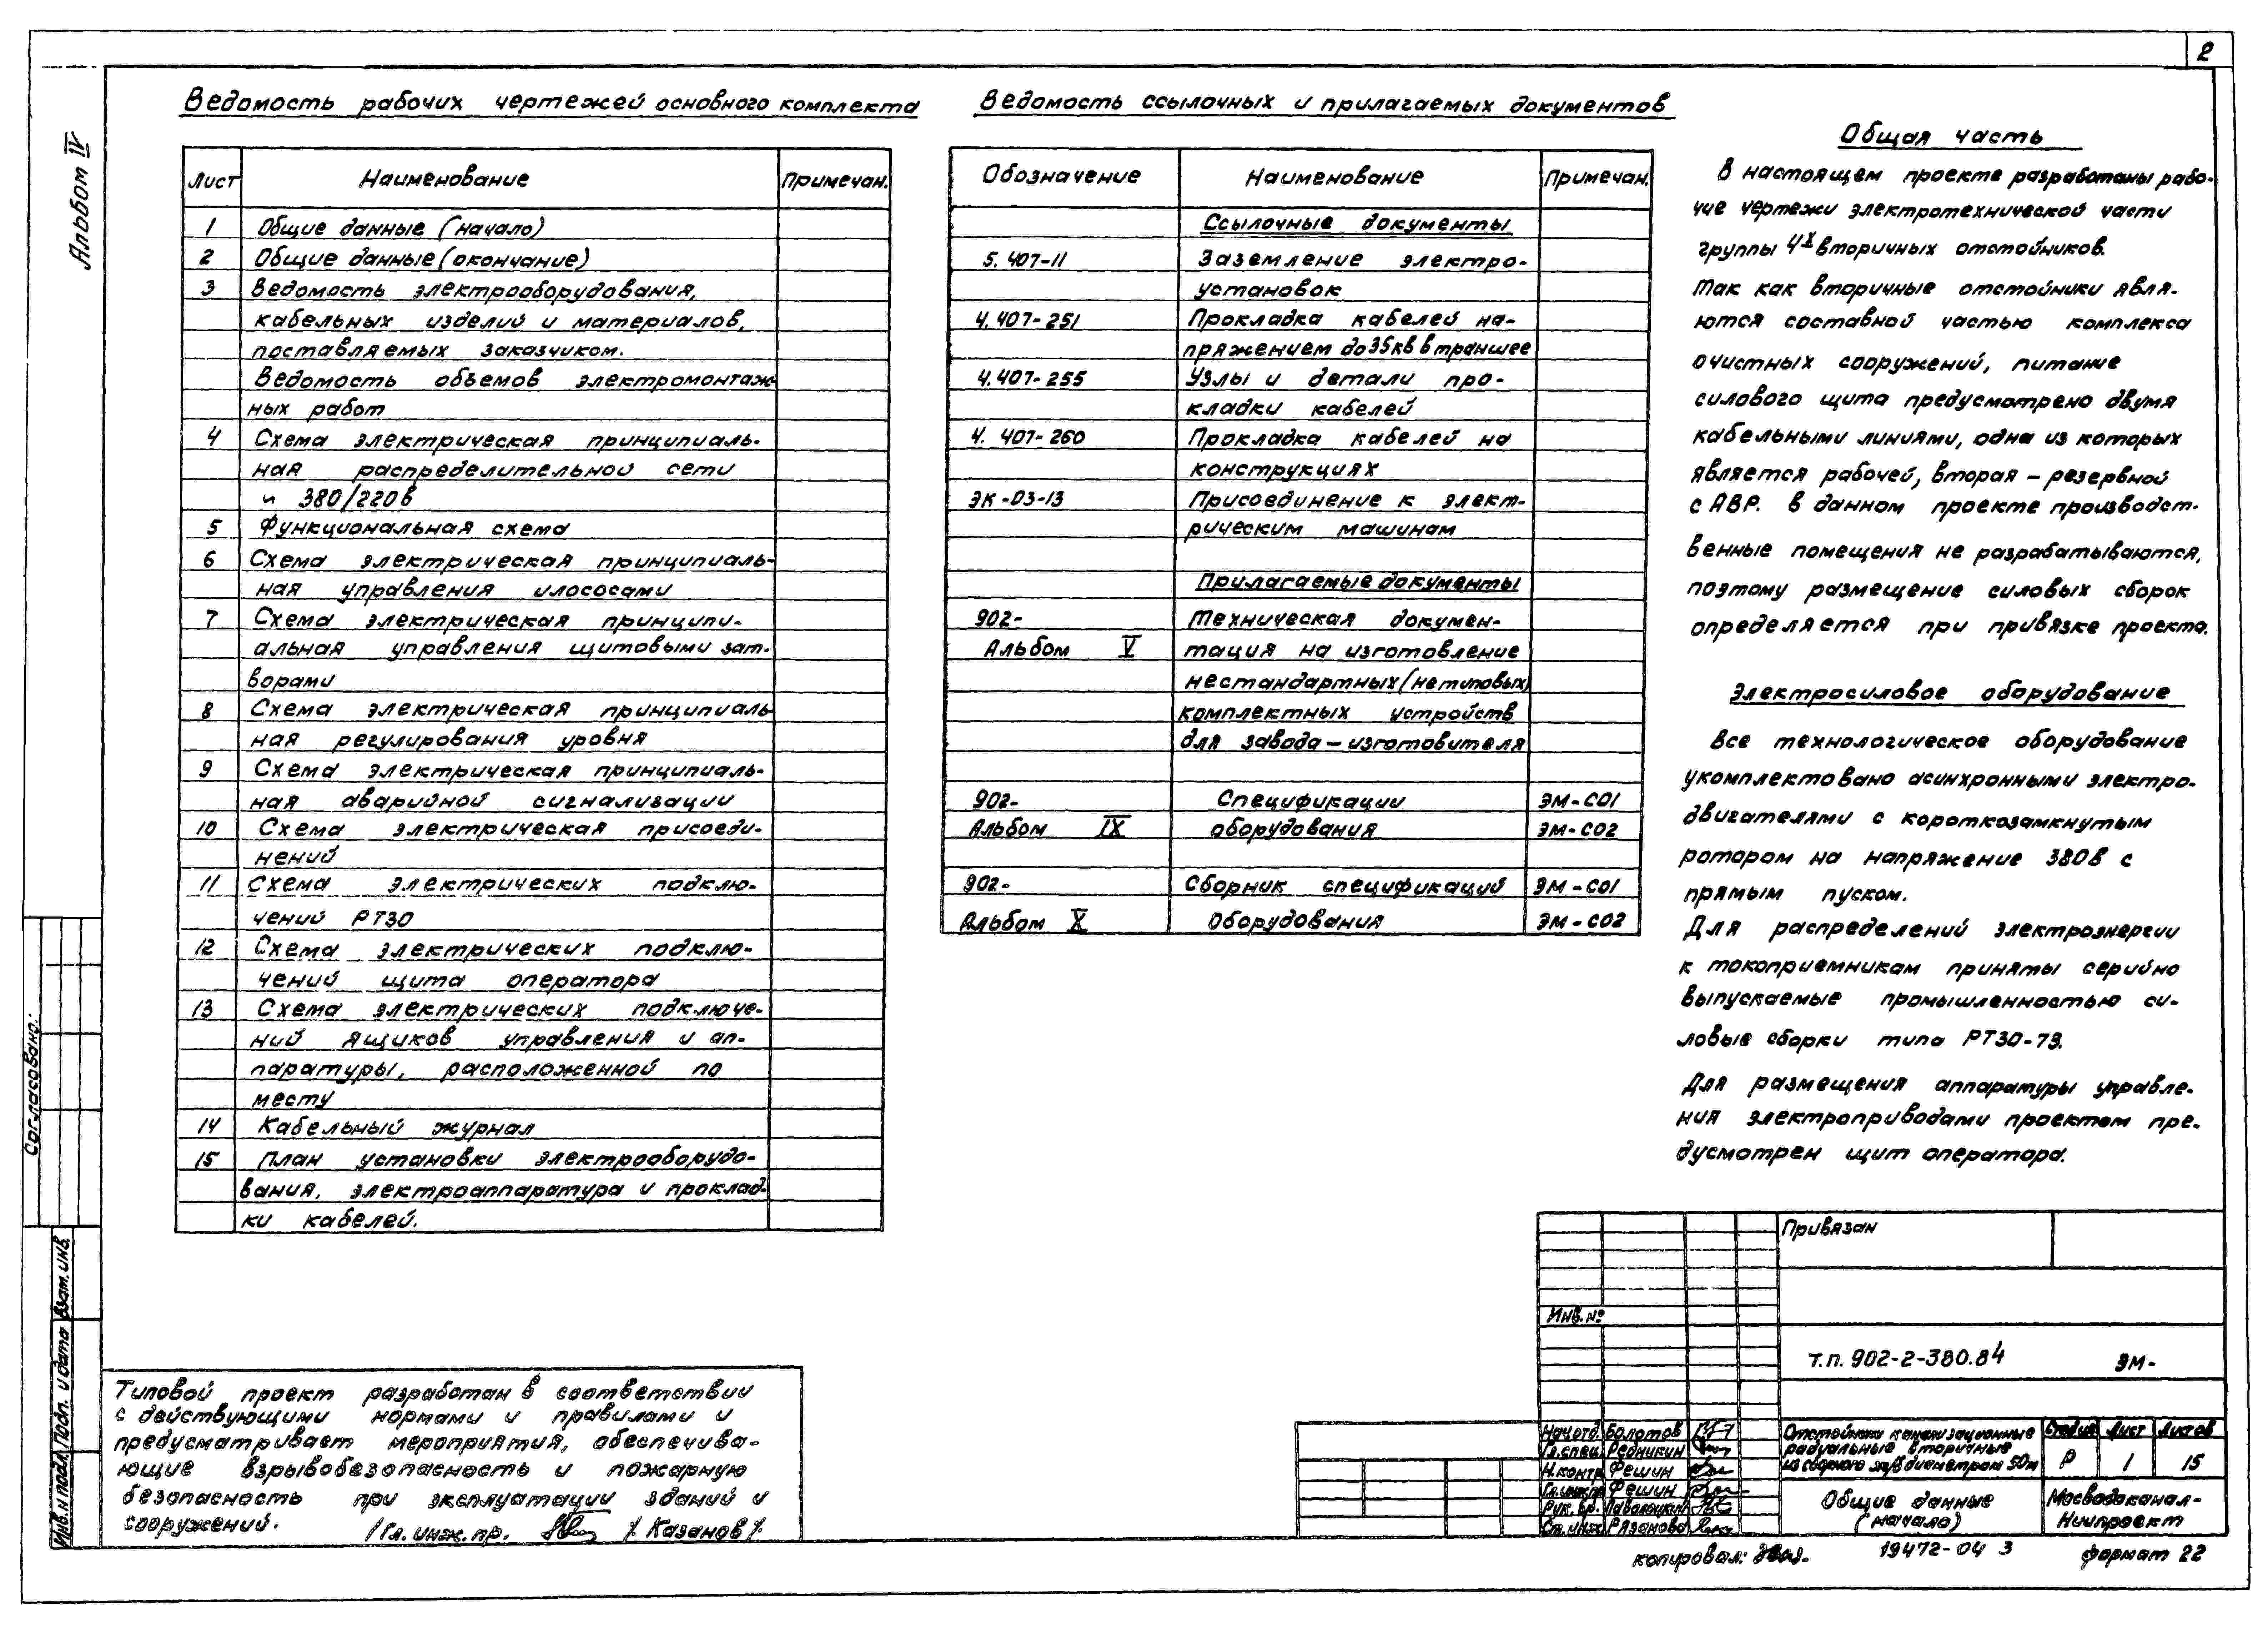 2
Альбом IV
Ведомость рабочих чертежей основного комплекта
Лист Наименование Примечан.
1 Общие данные (начало)
2 Общие данные (окончание)
3 Ведомость электрооборудования,
кабельных изделий и материалов,
поставляемых заказчиком.
Ведомость объемов электромонтаж-
ных работ
4 Схема электрическая принципиаль-
ная распределительной сети
~ 380/220в
5 Функциональная схема
6 Схема электрическая принципиаль-
ная управления илососами
7 Схема электрическая принципи-
альная управления щитовыми зат-
ворами
8 Схема электрическая принципиаль-
ная регулирования уровня
9 Схема электрическая принципиаль-
ная аварийной сигнализации
10 Схема электрическая присоеди-
нений
11 Схема электрических подклю-
чений РТ30
12 Схема электрических подклю-
чений щита оператора
13 Схема электрических подключе-
ний ящиков управления и ап-
паратуры, расположенной по
месту
14 Кабельный журнал
15 План установки электрооборудо-
вания, электроаппаратура и проклад-
ки кабелей.
Ведомость ссылочных и прилагаемых документов
Обозначение Наименование Примечан.
Ссылочные документы
5.407-11 Заземление электро-
установок
4.407-251 Прокладка кабелей на-
пряжением до 35кв в траншее
4.407-255 Узлы и детали про-
кладки кабелей
4.407-260 Прокладка кабелей на
конструкциях
ЭК-03-13 Присоединение к элект-
рическим машинам
Прилагаемые документы
902- Техническая докумен-
Альбом V тация на изготовление
нестандартных (нетиповых)
комплектных устройств
для завода-изготовителя
902- Спецификации ЭМ-СО1
Альбом IX оборудования ЭМ-СО2
902- Сборник спецификаций ЭМ-СО1
Альбом X Оборудования ЭМ-СО2
Общая часть
В настоящем проекте разработаны рабо-
чие чертежи электротехнической части
группы 4х вторичных отстойников.
Так как вторичные отстойники явля-
ются составной частью комплекса
очистных сооружений, питание
силового щита предусмотрено двумя
кабельными линиями, одна из которых
является рабочей, вторая – резервной
с АВР. В данном проекте производст-
венные помещения не разрабатываются,
поэтому размещение силовых сборок
определяется при привязке проекта.
Электросиловое оборудование
Все технологическое оборудование
укомплектовано асинхронными электро-
двигателями с короткозамкнутым
ротором на напряжение 380в с
прямым пуском.
Для распределений электроэнергии
к токоприемникам приняты серийно
выпускаемые промышленностью си-
ловые сборки типа РТ30-79.
Для размещения аппаратуры управле-
ния электроприводами проектом пре-
дусмотрен щит оператора.
Согласовано:
Взам. инв.
Подп. и дата
Инв. н подл.
Типовой проект разработан в соответствии
с действующими нормами и правилами и
предусматривает мероприятия, обеспечива-
ющие взрывобезопасность и пожарную
безопасность при эксплуатации зданий и
сооружений.
/Гл. инж. пр. /. Казанов /.
Привязан
Инв. №
т.п. 902-2-380.84 ЭМ-
Нач отд. Болотов
Гл. спец. Редникин
Н.контр Фешин
Гл.инж.пр Фешин
Рук. гр.
Ст. инж Рязанова
Отстойники канализационные
радиальные вторичные
из сборного ж/б диаметром 50м
Стадия Лист Листов
Р 1 15
Общие данные
(начало)
Мосводоканал-
Ниипроект
копировал:
19472-04 3
формат 22